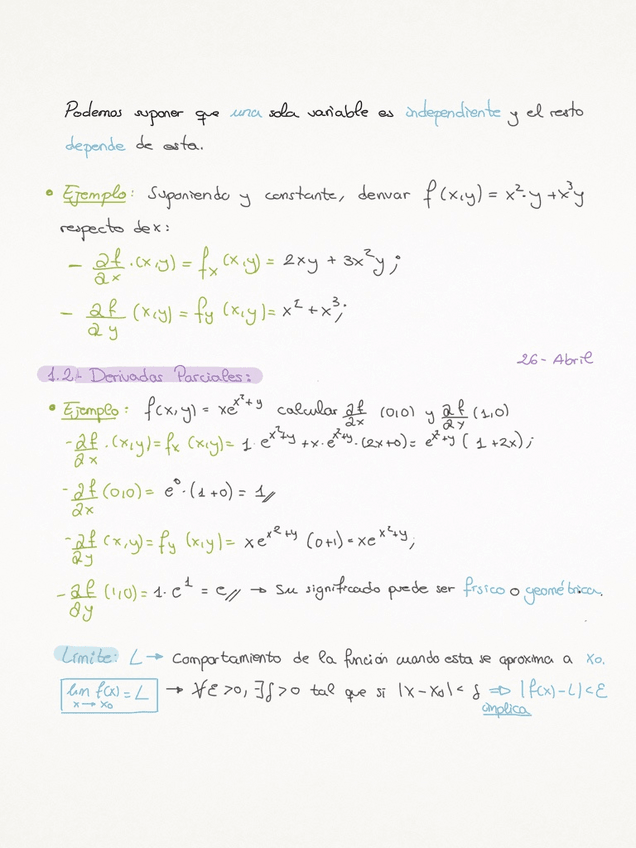 Podemos suponer que una sola variable es independiente y el resto
depende de esta.
• Ejemplo: Suponiendo y constante, derivar f(x,y) = x²·y + x³y
respecto de x:
- ∂f/∂x ·(x,y) = fₓ (x,y) = 2xy + 3x²y;
- ∂f/∂y (x,y) = f_y (x,y) = x² + x³;
26 - Abril
1.2.- Derivadas Parciales:
• Ejemplo: f(x,y) = xe^(x²+y) calcular ∂f/∂x (0,0) y ∂f/∂y (1,0)
- ∂f/∂x ·(x,y) = fₓ (x,y) = 1·e^(x²+y) + x·e^(x²+y)·(2x+0) = e^(x²+y) (1+2x);
- ∂f/∂x (0,0) = e⁰·(1+0) = 1//
- ∂f/∂y (x,y) = f_y (x,y) = xe^(x²+y) (0+1) = xe^(x²+y);
- ∂f/∂y (1,0) = 1·e¹ = e// → Su significado puede ser físico o geométrico.
Límite: L → Comportamiento de la función cuando esta se aproxima a x₀.
lim x→x₀ f(x) = L → ∀ε>0, ∃δ>0 tal que si |x-x₀|<δ ⇒ |f(x)-L|<ε
implica